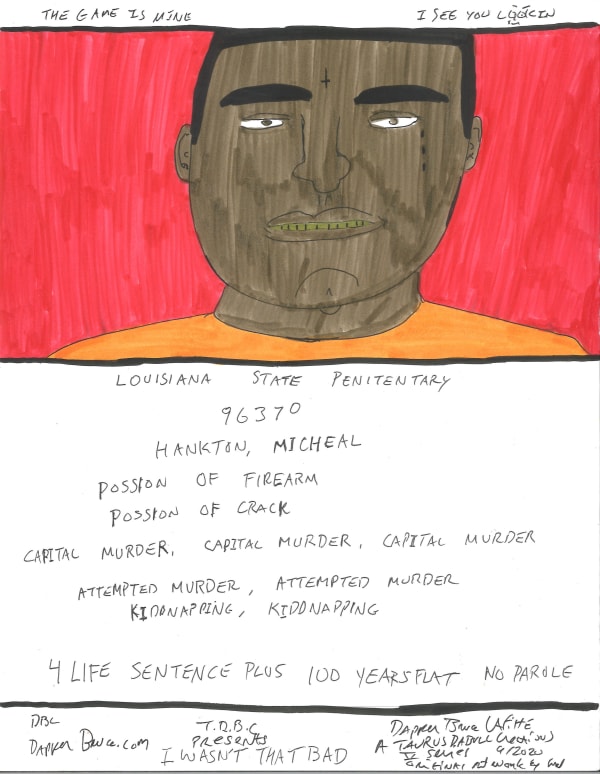 THE GAME IS MINE
I SEE YOU LOOKIN
LOUISIANA STATE PENITENTARY
96370
HANKTON, MICHEAL
POSSION OF FIREARM
POSSION OF CRACK
CAPITAL MURDER, CAPITAL MURDER, CAPITAL MURDER
ATTEMPTED MURDER, ATTEMPTED MURDER
KIDDNAPPING, KIDDNAPPING
4 LIFE SENTENCE PLUS 100 YEARS FLAT NO PAROLE
DBC
DAPPER BRUCE.COM
T.D.B.C
PRESENTS
I WASN'T THAT BAD
DAPPER BRUCE LAFITTE
A TAURUS
SERIES 4/2020
ORIGINAL ART WORK BY